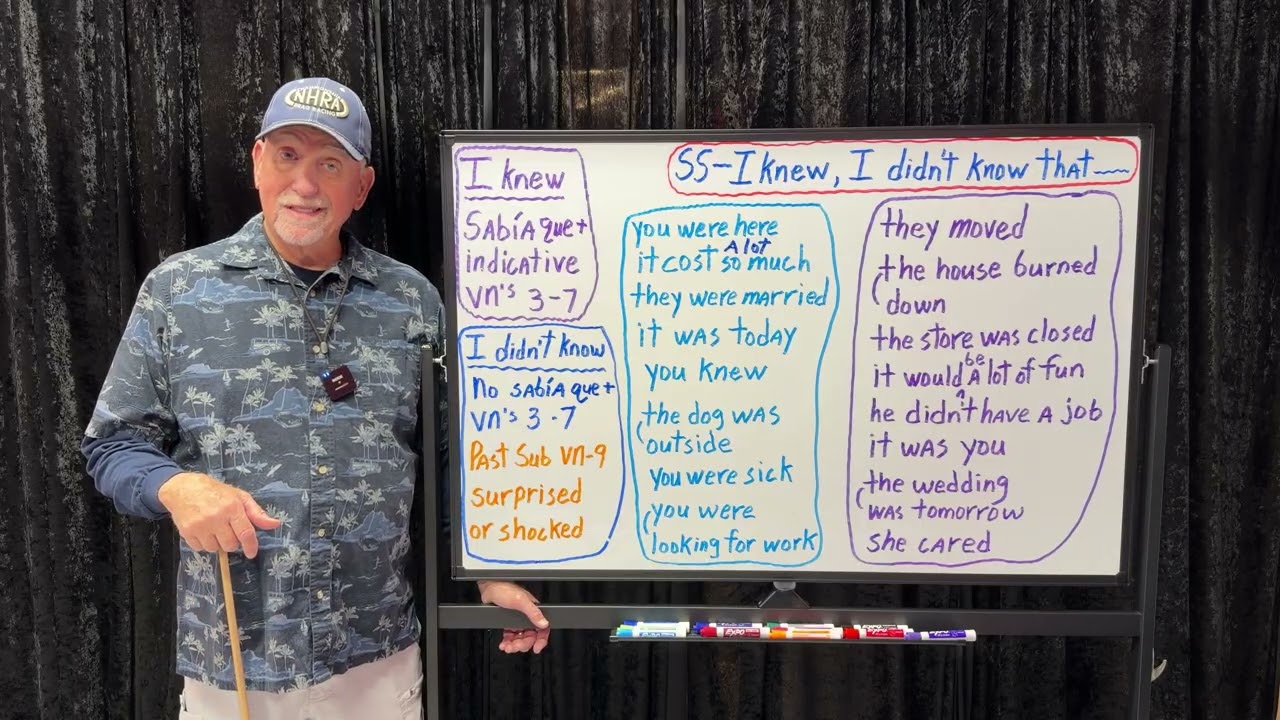 NHRA
DRAG RACING
SS-I knew, I didn't know that
I knew
SAbíA que+
indicative
VN's 3-7
I didn't know
No SAbíA que+
VN's 3-7
PAst Sub VN-9
surprised
or shocked
you were here
A lot
it cost so much
they were mArried
it was today
you knew
the dog wAs
outside
you were sick
you were
looking for work
they moved
the house burned
down
the store wAs closed
be
it would A lot of fun
he didn't have A job
it wAs you
the wedding
wAs tomorrow
she cAred
EXPO
EXPO